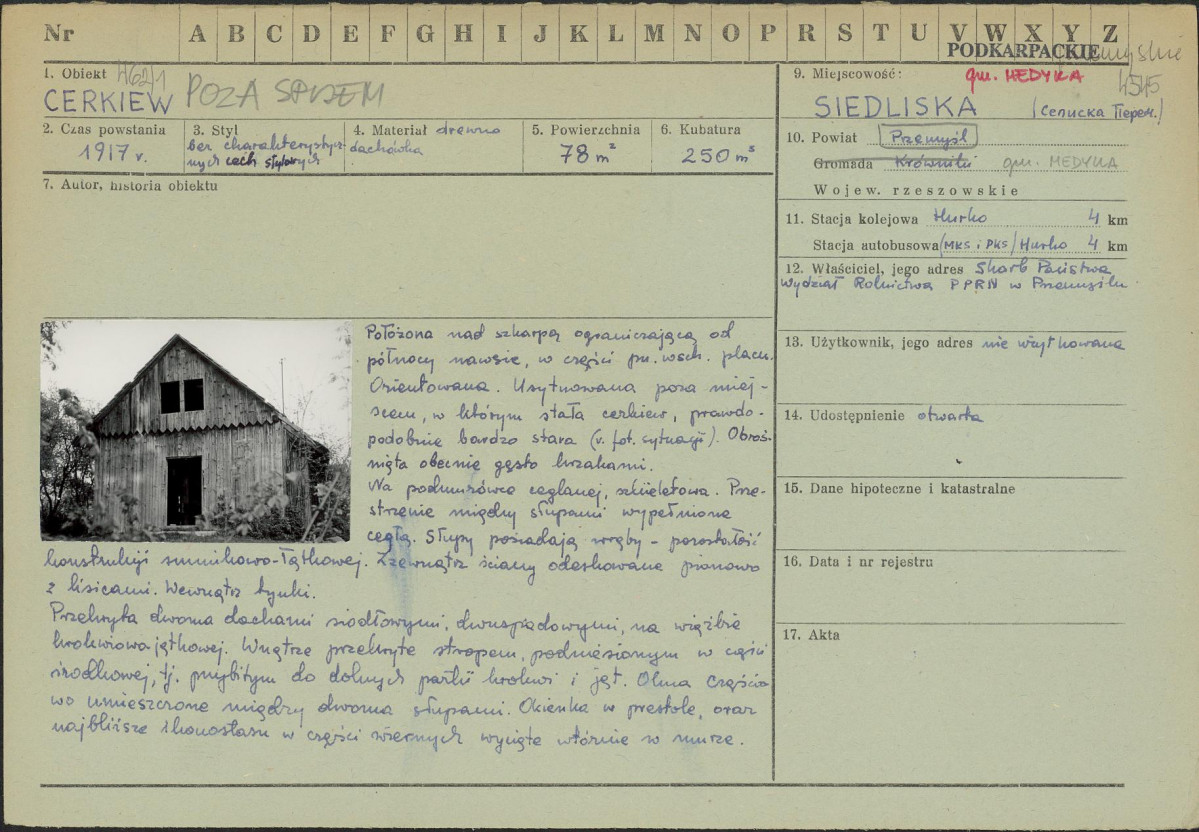 Nr A B C D E F G H I J K L M N O P R S T U V W X Y Z
PODKARPACKIE
1. Obiekt 4621
CERKIEW POZA SPISEM
2. Czas powstania
1917 r.
3. Styl
bez charakterystycz
nych cech stylowych
4. Materiał drewno
dachówka
5. Powierzchnia
78 m²
6. Kubatura
250 m³
7. Autor, historia obiektu
Położona nad szkarpą ograniczającą od
północy nawsie, w części pn. wsch. placu.
Orientowana. Usytuowana poza miej-
scem, w którym stała cerkiew, prawdo-
podobnie bardzo stara (v. fot. sytuacji). Obroś-
nięta obecnie gęsto krzakami.
Na podmurówce ceglanej, szkieletowa. Prze-
strzenie między słupami wypełnione
cegłą. Słupy posiadają wręby - pozostałość
konstrukcji sumikowo-łątkowej. Zzewnątrz ściany odeskowane pionowo
z lisicami. Wewnątrz tynki.
Przekryta dwoma dachami siodłowymi, dwuspadowymi, na więźbie
krokwiowo jątkowej. Wnętrze przekryte stropem, podniesionym w części
środkowej, tj. przybitym do dolnych partii krokwi i jęt. Okna częścio
wo umieszczone między dwoma słupami. Okienka w prestole, oraz
najbliższe ikonostasu w części wiernych wycięte wtórnie w murze.
9. Miejscowość: gm. MEDYKA
4545
SIEDLISKA
10. Powiat Przemyśl
Gromada Krówniki gm. MEDYKA
Wojew. rzeszowskie
11. Stacja kolejowa Hurko 4 km
Stacja autobusowa (MKS i PKS) Hurko 4 km
12. Właściciel, jego adres Skarb Państwa
Wydział Rolnictwa PPRN w Przemyślu.
13. Użytkownik, jego adres nie użytkowana
14. Udostępnienie otwarta
15. Dane hipoteczne i katastralne
16. Data i nr rejestru
17. Akta